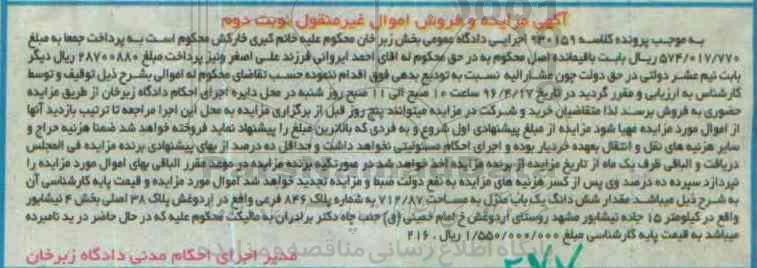 آگهی مزایده و فروش اموال غیرمنقول نوبت دوم
به موجب پرونده کلاسه ۹۳۰۱۵۹ اجرایی دادگاه عمومی بخش زبرخان محکوم علیه خانم کبری خارکش محکوم است به پرداخت جمعا به مبلغ
۵۷۴/۰۱۷/۷۷۰ ریال بابت باقیمانده اصل محکوم به در حق محکوم له آقای احمد ایروانی فرزند علی اصغر ونیز پرداخت مبلغ ۲۸۷۰۰۸۸۰ ریال دیگر
بابت نیم عشر دولتی در حق دولت چون مشارالیه نسبت به تودیع بدهی فوق اقدام ننموده حسب تقاضای محکوم له اموالی بشرح ذیل توقیف و توسط
کارشناس به ارزیابی و مقرر گردید در تاریخ ۹۶/۴/۲۷ ساعت ۱۰ صبح الی ۱۱ صبح روز شنبه در محل دایره اجرای احکام دادگاه زبرخان از طریق مزایده
حضوری به فروش برسد لذا متقاضیان خرید و شرکت در مزایده میتوانند پنج روز قبل از برگزاری مزایده به محل این اجرا مراجعه تا ترتیب بازدید آنها
از اموال مورد مزایده مهیا شود مزایده از مبلغ پیشنهادی اول شروع و به فردی که بالاترین مبلغ را پیشنهاد نماید فروخته خواهد شد ضمنا هزنیه حراج و
سایر هزنیه های نقل و انتقال بعهده خردیار بوده و اجرای احکام مسئولیتی نخواهد داشت و حداقل ده درصد از بهای پیشنهادی برنده مزایده فی المجلس
دریافت و الباقی ظرف یک ماه از تاریخ مزایده از برنده مزایده اخذ خواهد شد در صورتیکه برنده مزایده در موعد مقرر الباقی بهای اموال مورد مزایده را
نپردازد سپرده ده درصد وی پس از کسر هزنیه های مزایده به نفع دولت ضبط و مزایده تجدید خواهد شد اموال مورد مزایده و قیمت پایه کارشناسی آن
به شرح ذیل میباشد مقدار شش دانگ یک باب منزل به مساحت ۷۱۲/۸۷ به شماره پلاک ۸۴۶ فرعی واقع در اردوغش پلاک ۳۸ اصلی بخش ۴ نیشابور
واقع در کیلومتر ۱۵ جاده نیشابور مشهد روستای اردوغش خ امام خمینی (ق) جنب چاه دکتر برادران به مالیکت محکوم علیه که در حال حاضر در ید نامبرده
میباشد به قیمت پایه کارشناسی مبلغ ۱/۵۵۰/۰۰۰/۰۰۰ ریال . ۲۱۶
مدیر اجرای احکام مدنی دادگاه زبرخان
پایگاه اطلاع رسانی مناقصه و مزایده
۲۷۷